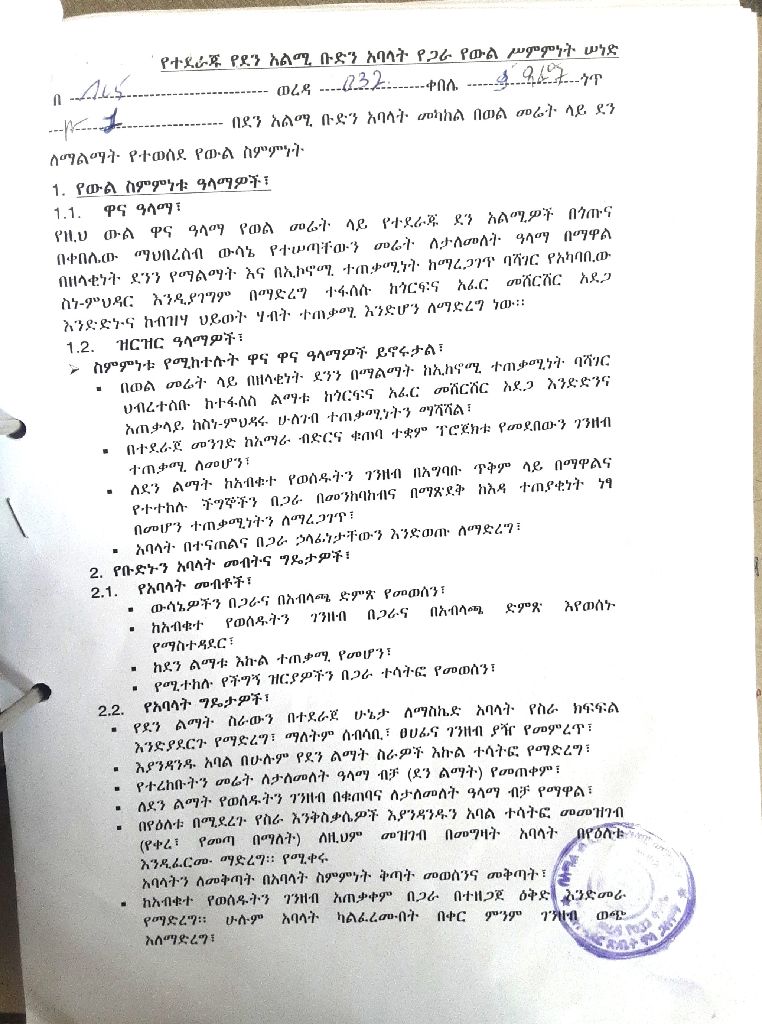 የተደራጁ የደን አልሚ ቡድን አባላት የጋራ የውል ሥምምነት ሠነድ
በ ---------------- ወረዳ ----032----ቀበሌ ----------------ጎጥ
-----1----- በደን አልሚ ቡድን አባላት መካከል በወል መሬት ላይ ደን
ለማልማት የተወሰደ የውል ስምምነት
1. የውል ስምምነቱ ዓላማዎች፣
1.1. ዋና ዓላማ፣
የዚህ ውል ዋና ዓላማ የወል መሬት ላይ የተደራጁ ደን አልሚዎች በጎጡና
በቀበሌው ማህበረሰብ ውሳኔ የተሠጣቸውን መሬት ለታለመለት ዓላማ በማዋል
በዘላቂነት ደንን የማልማት እና በኢኮኖሚ ተጠቃሚነት ከማረጋገጥ ባሻገር የአካባቢው
ስነ-ምህዳር እንዲያገግም በማድረግ ተፋሰሱ ከጎርፍና አፈር መሸርሸር አደጋ
እንድድኑና ከብዝሃ ህይወት ሃብት ተጠቃሚ እንድሆን ለማድረግ ነው፡፡
1.2. ዝርዝር ዓላማዎች፣
➢ ስምምነቱ የሚከተሉት ዋና ዋና ዓላማዎች ይኖሩታል፣
▪ በወል መሬት ላይ በዘላቂነት ደንን በማልማት ከኢኮኖሚ ተጠቃሚነት ባሻገር
ህብረተሰቡ ከተፋሰስ ልማቱ ከጎርፍና አፈር መሸርሸር አደጋ እንድድንና
አጠቃላይ ከስነ-ምህዳሩ ሁለገብ ተጠቃሚነትን ማሻሻል፣
▪ በተደራጀ መንገድ ከአማራ ብድርና ቁጠባ ተቋም ፕሮጀክቱ የመደበውን ገንዘብ
ተጠቃሚ ለመሆን፣
▪ ለደን ልማት ከአብቁተ የወሰዱትን ገንዘብ በአግባቡ ጥቅም ላይ በማዋልና
የተተከሉ ችግኞችን በጋራ በመንከባከብና በማጽደቅ ከእዳ ተጠያቂነት ነፃ
በመሆን ተጠቃሚነትን ለማረጋገጥ፣
▪ አባላት በተናጠልና በጋራ ኃላፊነታቸውን እንድወጡ ለማድረግ፣
2. የቡድኑን አባላት መብትና ግዴታዎች፣
2.1. የአባላት መብቶች፣
▪ ውሳኔዎችን በጋራና በአብላጫ ድምጽ የመወሰን፣
▪ ከአብቁተ የወሰዱትን ገንዘብ በጋራና በአብላጫ ድምጽ እየወሰኑ
የማስተዳደር፣
▪ ከደን ልማቱ እኩል ተጠቃሚ የመሆን፣
▪ የሚተከሉ የችግኝ ዝርያዎችን በጋራ ተሳትፎ የመወሰን፣
2.2. የአባላት ግዴታዎች፣
▪ የደን ልማት ስራውን በተደራጀ ሁኔታ ለማስኬድ አባላት የስራ ክፍፍል
እንድያደርጉ የማድረግ፣ ማለትም ሰብሳቢ፣ ፀሀፊና ገንዘብ ያዥ የመምረጥ፣
▪ እያንዳንዱ አባል በሁሉም የደን ልማት ስራዎች እኩል ተሳትፎ የማድረግ፣
▪ የተረከቡትን መሬት ለታለመለት ዓላማ ብቻ (ደን ልማት) የመጠቀም፣
▪ ለደን ልማት የወሰዱትን ገንዘብ በቁጠባና ለታለመለት ዓላማ ብቻ የማዋል፣
▪ በየዕለቱ በሚደረጉ የስራ እንቅስቃሴዎች እያንዳንዱን አባል ተሳትፎ መመዝገብ
(የቀረ፣ የመጣ በማለት) ለዚህም መዝገብ በመግዛት አባላት በየዕለቱ
እንዲፈርሙ ማድረግ፡፡ የሚቀሩ
አባላትን ለመቅጣት በአባላት ስምምነት ቅጣት መወሰንና መቅጣት፣
▪ ከአብቁተ የወሰዱትን ገንዘብ አጠቃቀም በጋራ በተዘጋጀ ዕቅድ እንድመራ
የማድረግ፡፡ ሁሉም አባላት ካልፈረሙበት በቀር ምንም ገንዘብ ወጭ
አለማድረግ፣